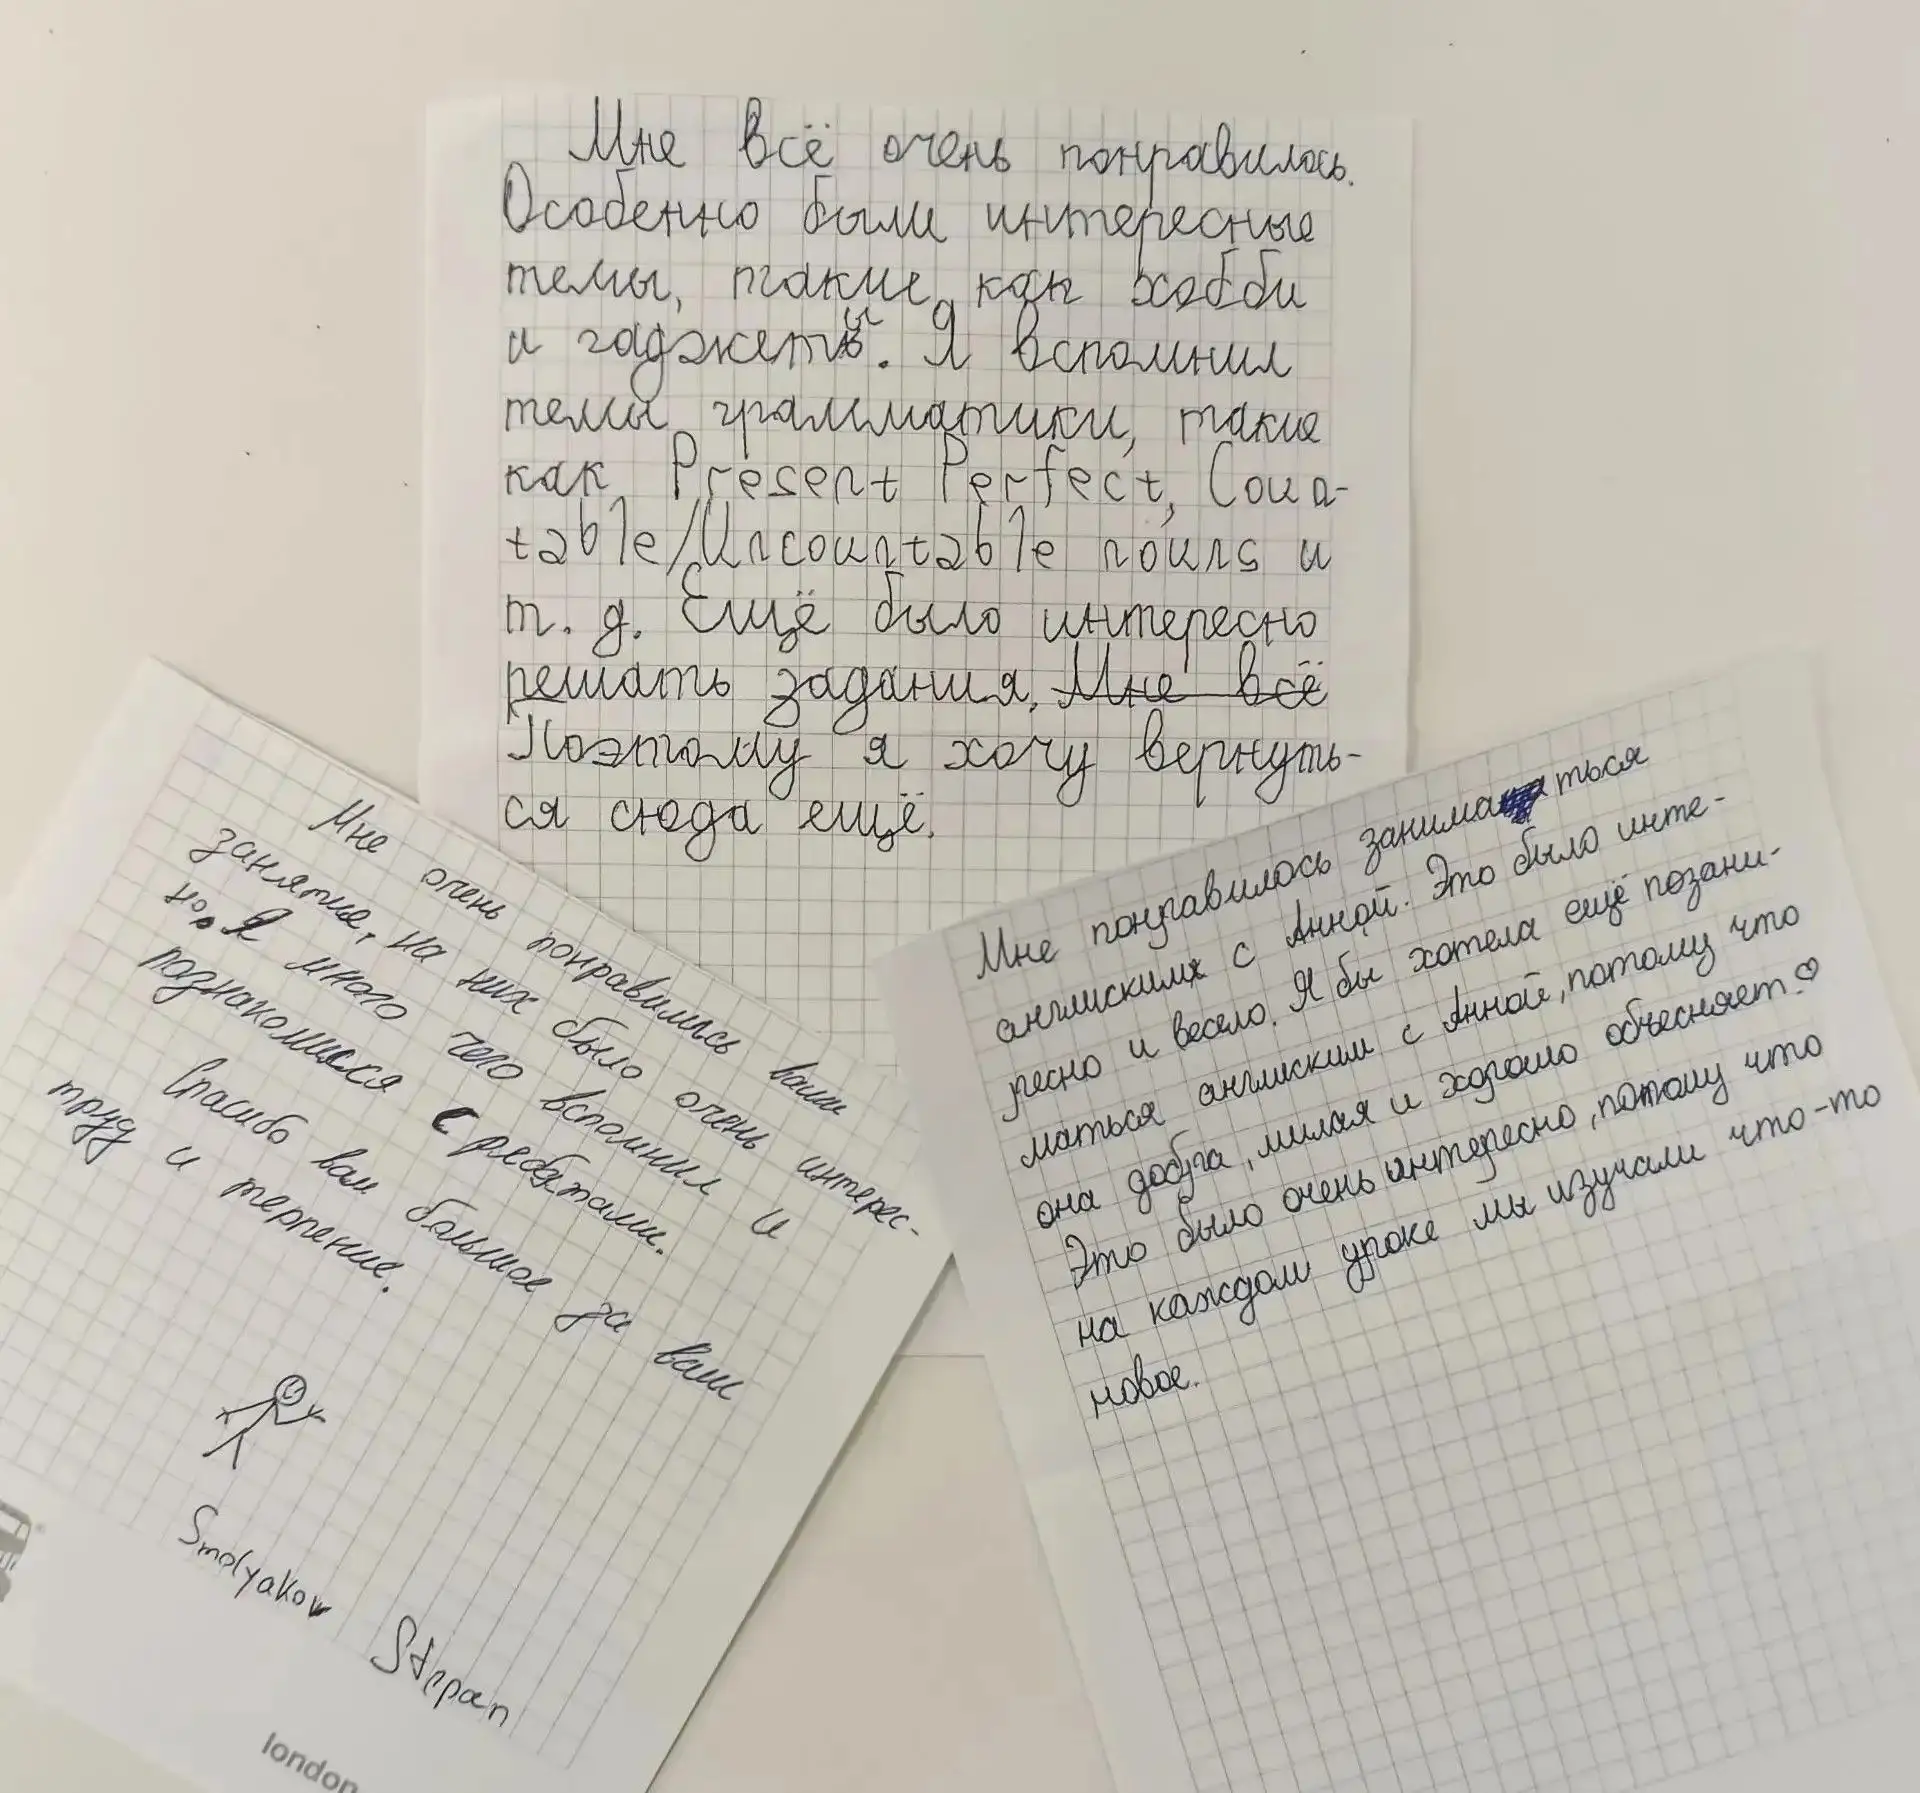 Мне всё очень понравилось.
Особенно были интересные
темы, такие как хобби
и гаджеты. Я вспомнил
темы грамматики, такие
как Present Perfect, Coun-
table/Uncountable nouns и
т. д. Ещё было интересно
решать задания. Мне всё
Поэтому я хочу вернуть-
ся сюда ещё.
Мне очень понравились ваши
занятие, на них было очень интерес-
но. Я много чего вспомнил и
познакомился с ребятами.
Спасибо вам большое за ваш
труд и терпение.
Smolyakov Stepan
london
Мне понравилось заниматься
англиским с Анной. Это было инте-
ресно и весело. Я бы хотела ещё позани-
маться англиским с Анной, потому что
она добра, милая и хорошо объесняет.♡
Это было очень интересно, потому что
на каждом уроке мы изучали что-то
новое.